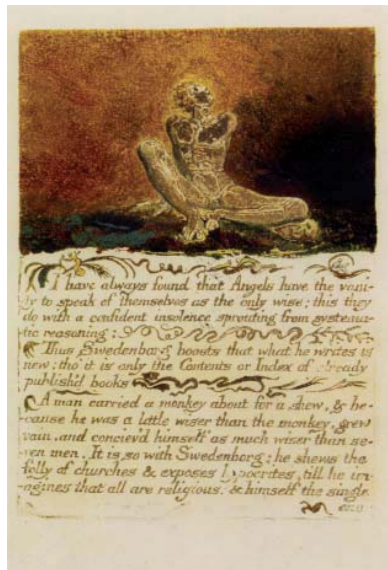 I have always found that Angels have the vani-
ty to speak of themselves as the only wise; this they
do with a confident insolence sprouting from systema-
tic reasoning:
Thus Swedenborg boasts that what he writes is
new: tho' it is only the Contents or Index of already
publish'd books
A man carried a monkey about for a shew, & be-
cause he was a little wiser than the monkey, grew
vain, and conciev'd himself as much wiser than se-
ven men. It is so with Swedenborg; he shews the
folly of churches & exposes hypocrites, till he im-
agines that all are religious. & himself the single
one